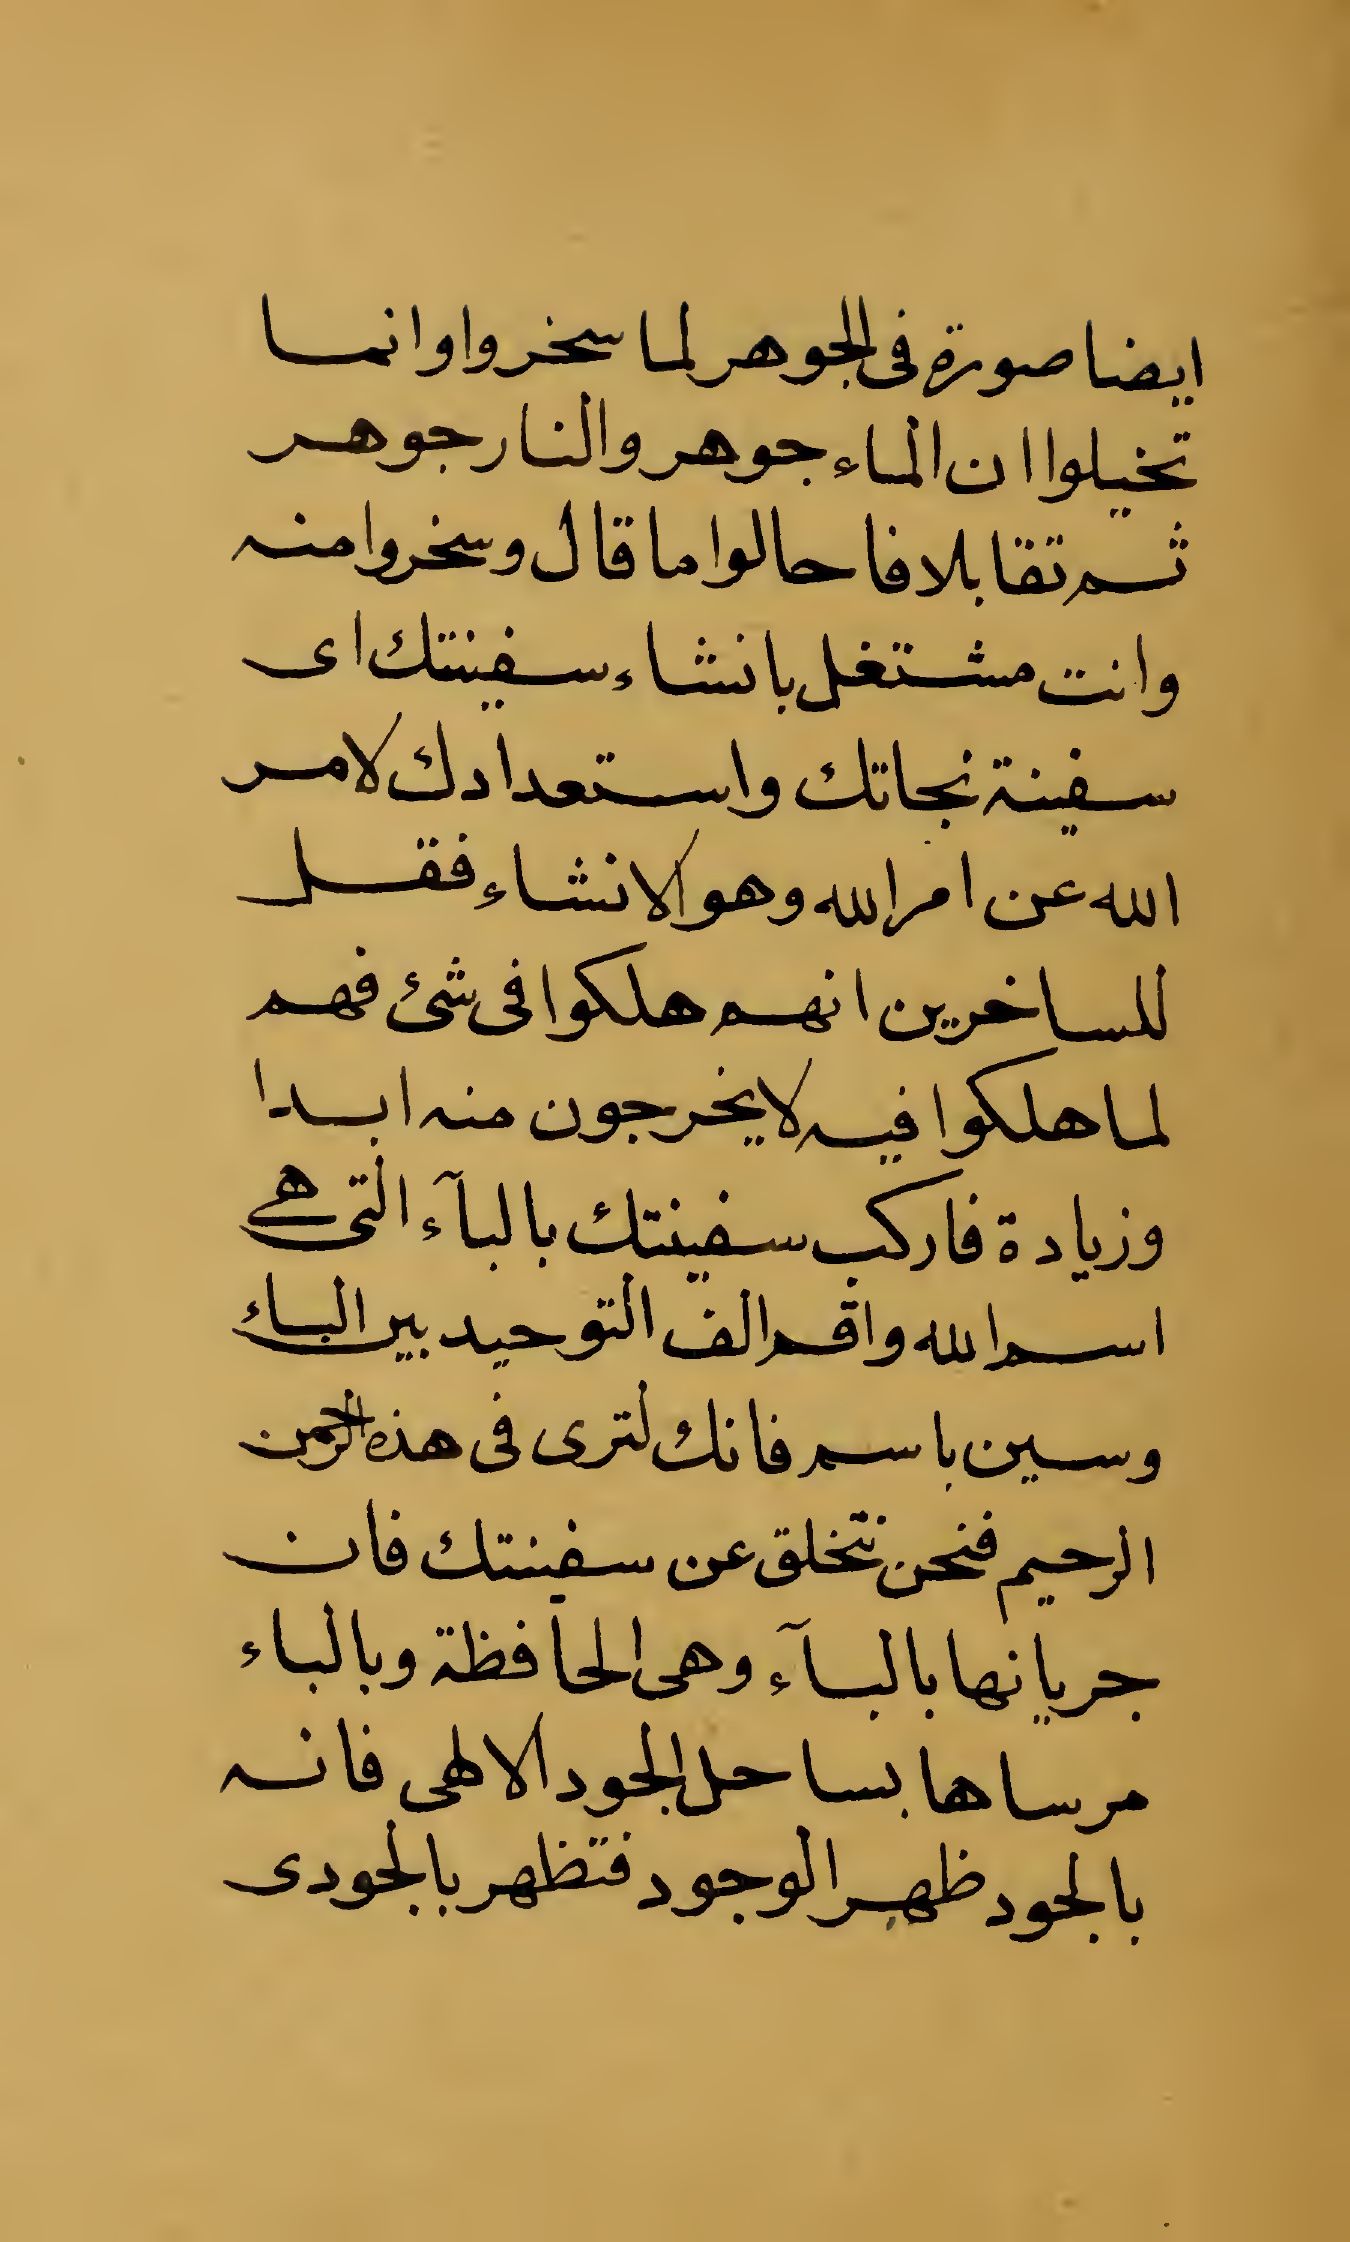 ايضا صورة فى الجوهر لما سخروا وانما
تخيلوا ان الماء جوهر والنار جوهر
ثم تقابلا فاحالوا ما قال وسخروا منه
وانت مشتغل بانشاء سفينتك اى
سفينة نجاتك واستعدادك لامر
الله عن امر الله وهو الانشاء فقل
للساخرين انهم هلكوا فى شئ فهم
لما هلكوا فيه لا يخرجون منه ابدا
وزيادة فاركب سفينتك بالبآء التى هى
اسم الله واقم الف التوحيد بين الباء
وسين باسم فانك لترى فى هذه الرحمن
الرحيم فنحن نتخلق عن سفينتك فان
جريانها بالبآء وهى الحافظة وبالباء
مرساها بساحل الجود الالهى فانه
بالجود ظهر الوجود فتظهر بالجودى